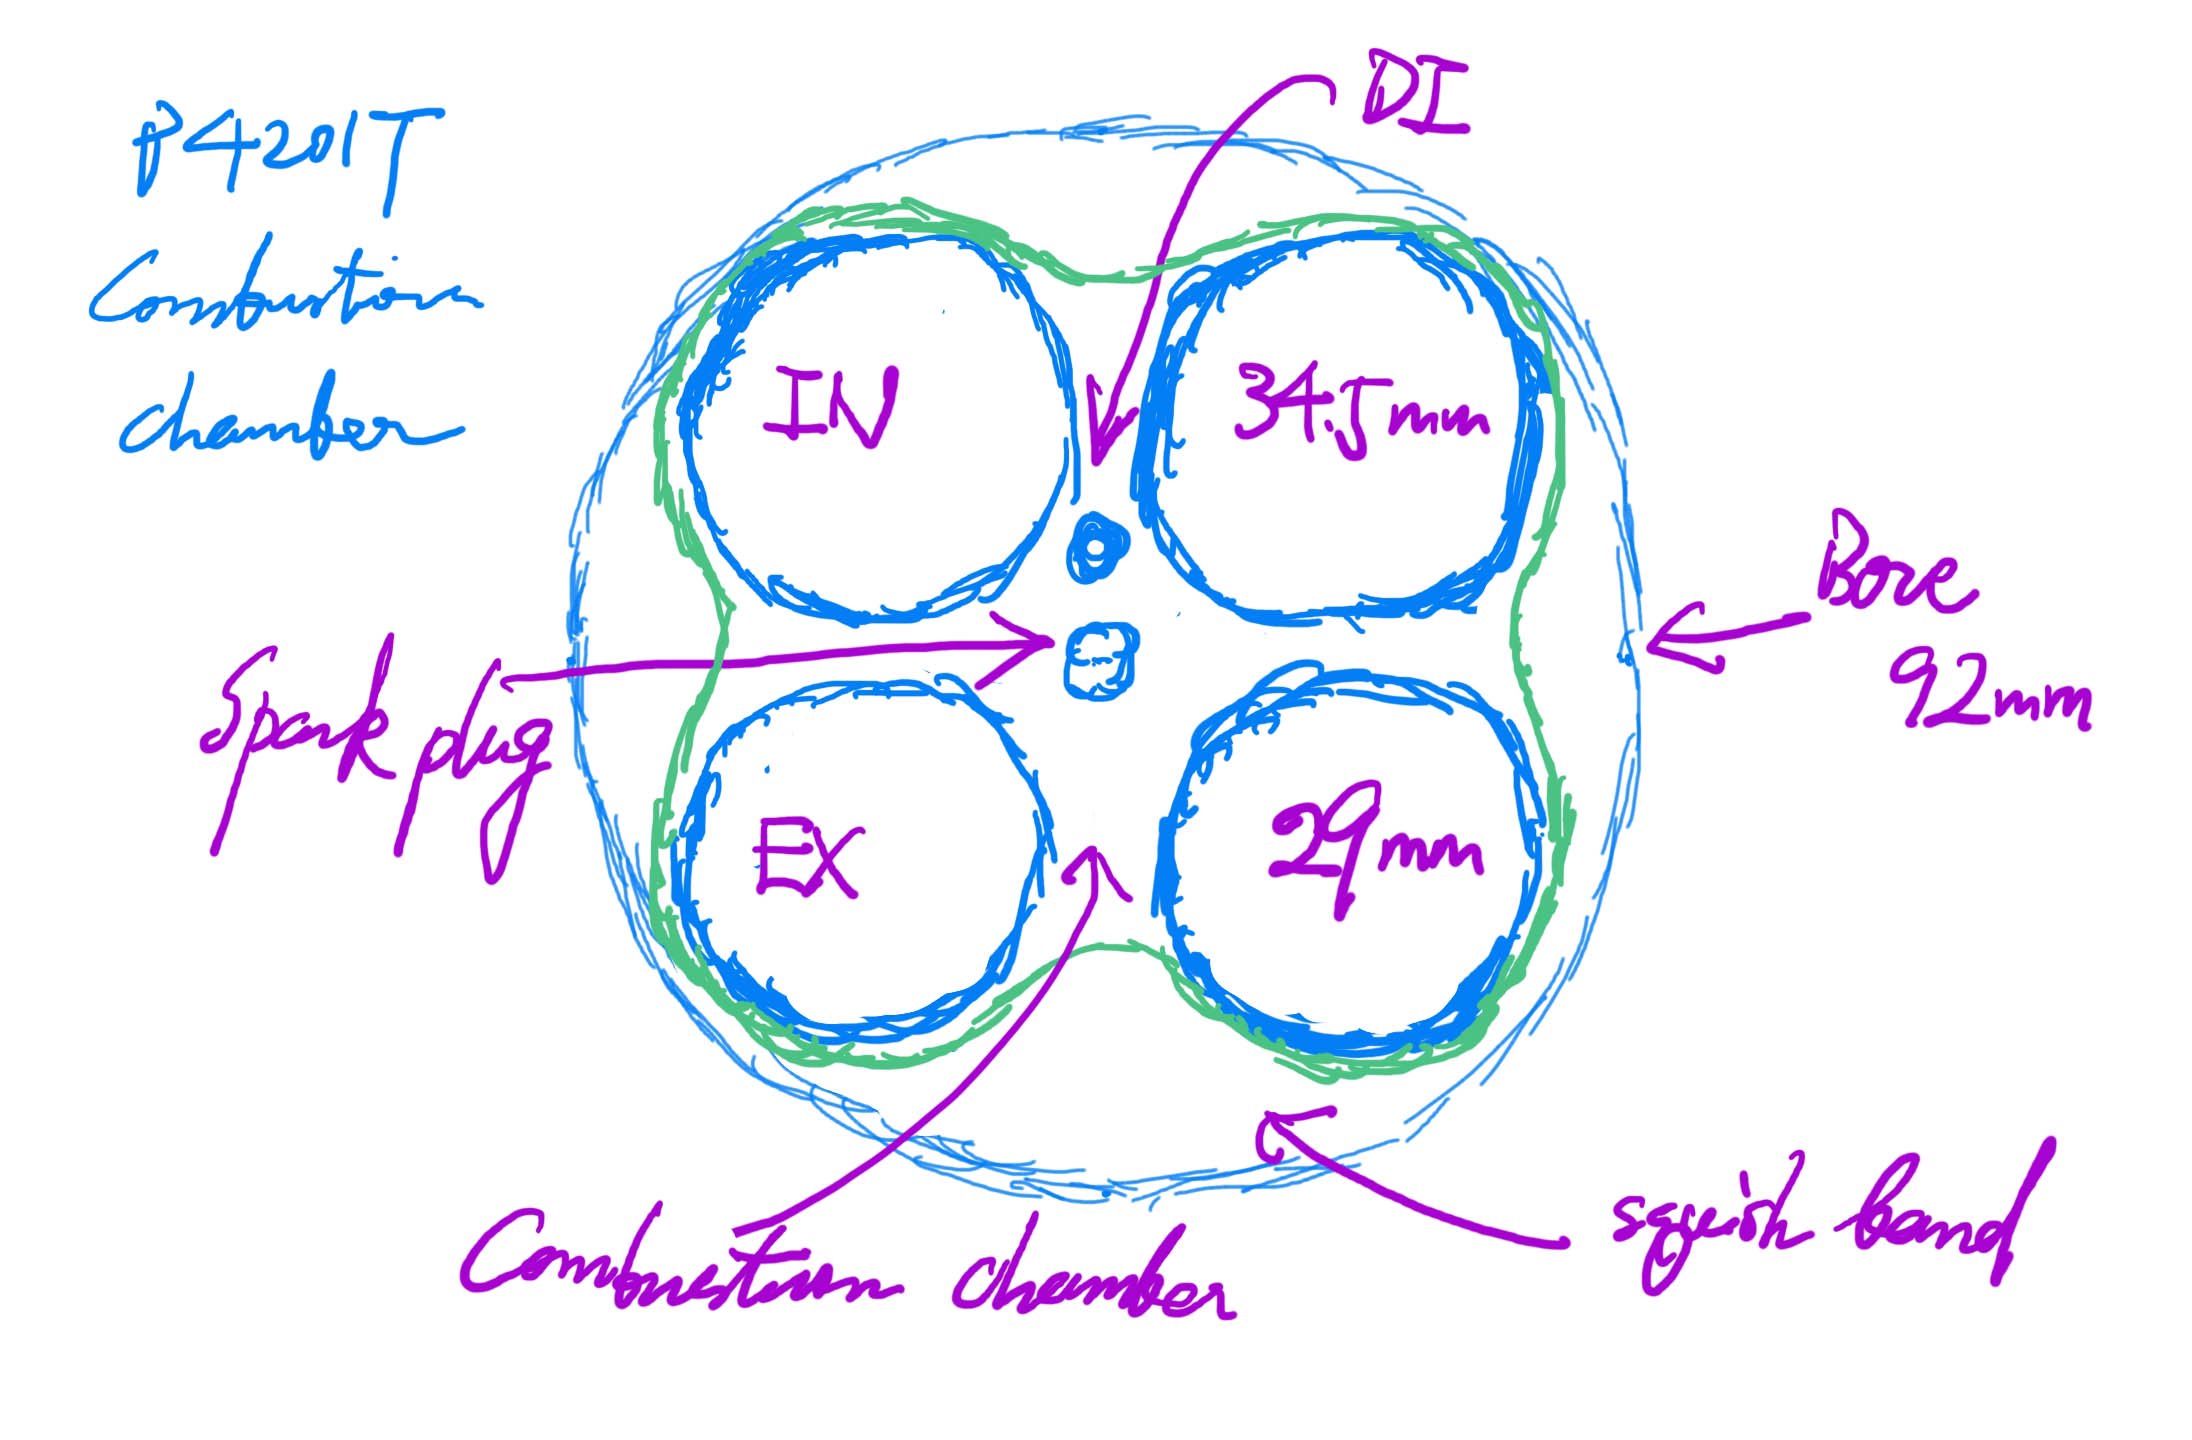 P4201T
Combustion
chamber
DI
IN
34.5mm
Bore
92mm
Spark plug
EX
29mm
Combustion chamber
squish band